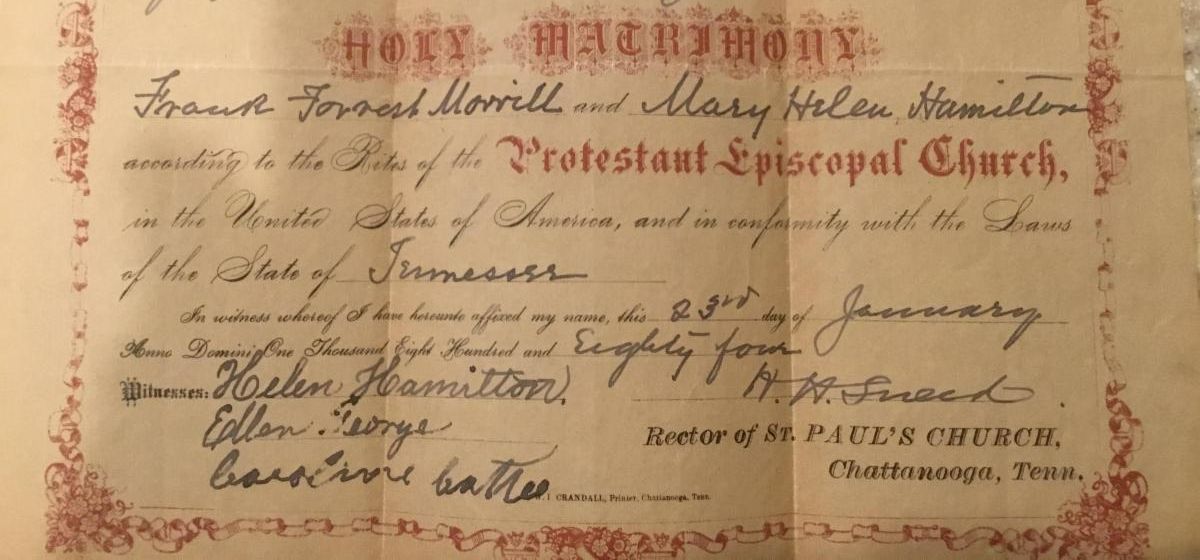 HOLY MATRIMONY
Frank Forrest Morrill and Mary Helen Hamilton
according to the Rites of the Protestant Episcopal Church,
in the United States of America, and in conformity with the Laws
of the State of Tennessee
In witness whereof I have hereunto affixed my name, this 23rd day of January
Anno Domini One Thousand Eight Hundred and Eighty four
Witnesses: Helen Hamilton. H. H. Sneed
Ellen George
Rector of ST. PAUL'S CHURCH,
Caroline
Chattanooga, Tenn.
CRANDALL, Printer, Chattanooga, Tenn.